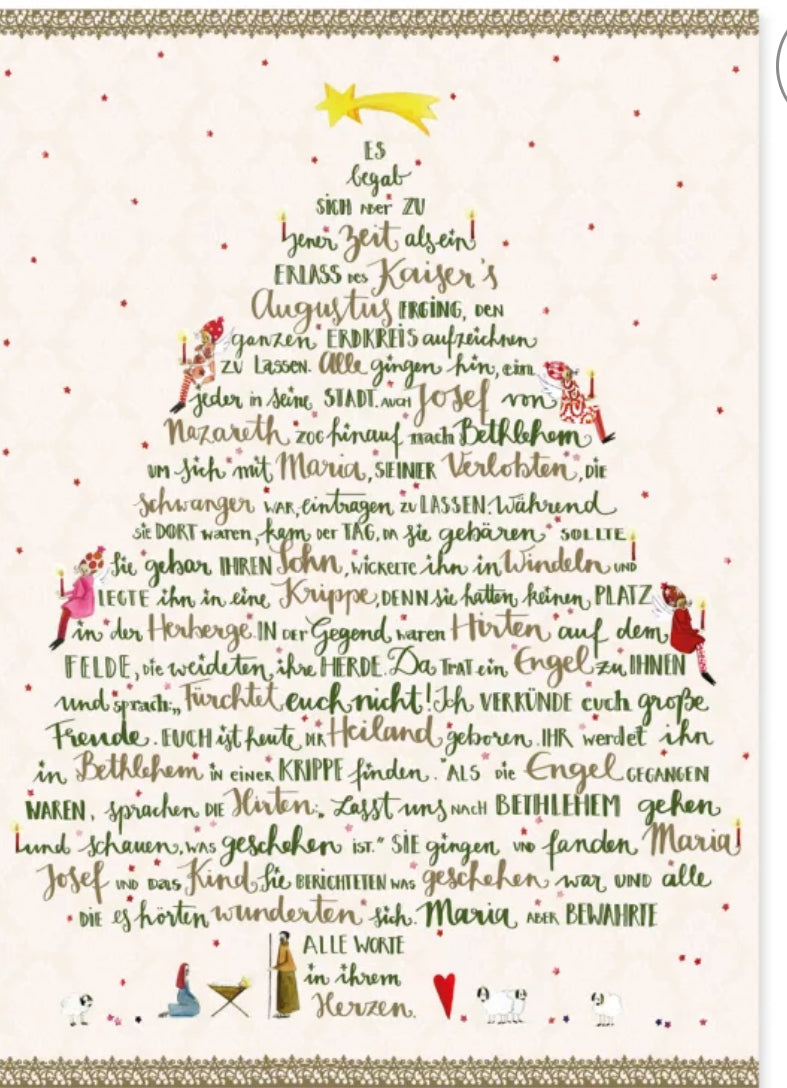 ES
begab
SICH aber ZU
jener Zeit als ein
ERLASS des Kaiser's
Augustus ERGING, DEN
ganzen ERDKREIS aufzeichnen
ZU Lassen. Alle gingen hin, ein
jeder in seine STADT. AUCH Josef von
Nazareth zog hinauf nach Bethlehem
UM sich mit Maria, SEINER Verlobten, DIE
schwanger WAR, eintragen zu LASSEN. Während
sie DORT waren, kam der TAG, DA sie gebären SOLLTE.
Sie gebar IHREN Sohn, wickelte ihn in Windeln UND
LEGTE ihn in eine Krippe, DENN sie hatten keinen PLATZ
in der Herberge. IN der Gegend waren Hirten auf dem
FELDE, die weideten ihre HERDE. Da TRAT ein Engel zu IHNEN
und sprach: „Fürchtet euch nicht! Ich VERKÜNDE euch große
Freude. EUCH ist heute DER Heiland geboren. IHR werdet ihn
in Bethlehem in einer KRIPPE finden." ALS die Engel GEGANGEN
WAREN, sprachen DIE Hirten: „Lasst uns NACH BETHLEHEM gehen
und schauen, WAS geschehen IST." SIE gingen UND fanden Maria
Josef UND DAS Kind. Sie BERICHTETEN WAS geschehen war UND alle
DIE es hörten wunderten sich. Maria ABER BEWAHRTE
ALLE WORTE
in ihrem
Herzen.